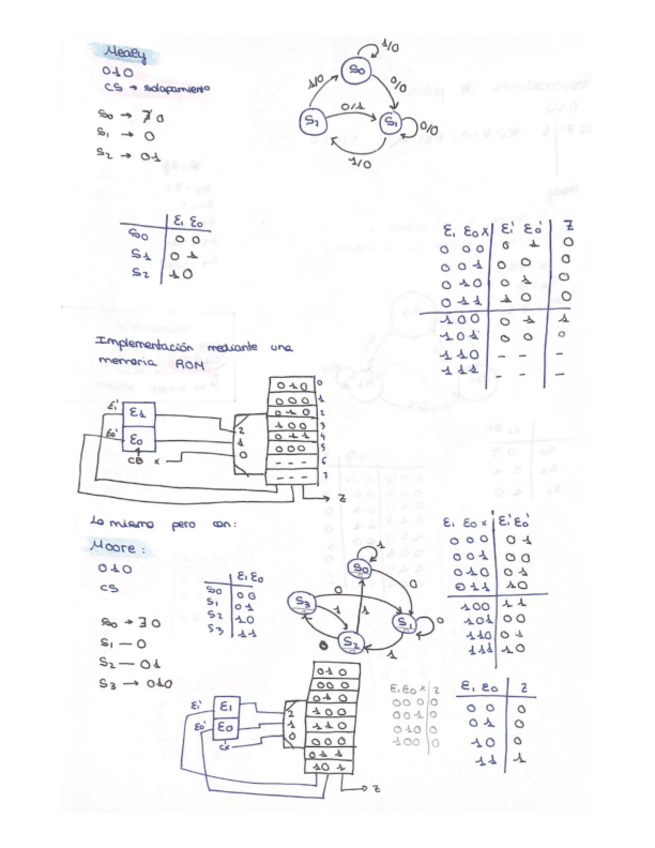 Mealy
010
CS → solapamiento
S0 → 0
S1 → 0
S2 → 01
S0
S1
S2
1/0
0/0
0/0
1/0
0/1
1/0
E1 E0
S0 0 0
S1 0 1
S2 1 0
E1 E0 X E1' E0' Z
0 0 0 0 1 0
0 0 1 0 0 0
0 1 0 0 1 0
0 1 1 1 0 0
1 0 0 0 1 1
1 0 1 0 0 0
1 1 0 - - -
1 1 1 - - -
Implementación mediante una
memoria ROM
E1' E1
E0' E0
X
2
1
0
0 1 0 0
0 0 0 1
0 1 0 2
1 0 0 3
0 1 1 4
0 0 0 5
- - - 6
- - - 7
Z
Lo mismo pero con:
Moore:
010
CS
S0 → 0
S1 — 0
S2 — 01
S3 → 010
E1 E0
S0 0 0
S1 0 1
S2 1 0
S3 1 1
S0
S1
S2
S3
1
0
0
1
0
1
1
0
E1 E0 X E1' E0'
0 0 0 0 1
0 0 1 0 0
0 1 0 0 1
0 1 1 1 0
1 0 0 1 1
1 0 1 0 0
1 1 0 0 1
1 1 1 1 0
E1' E1
E0' E0
2
1
0
0 1 0
0 0 0
0 1 0
1 0 0
1 1 0
0 0 0
0 1 1
1 0 1
Z
E1 E0 X Z
0 0 0 0
0 0 1 0
0 1 0 0
1 0 0 0
E1 E0 Z
0 0 0
0 1 0
1 0 0
1 1 1